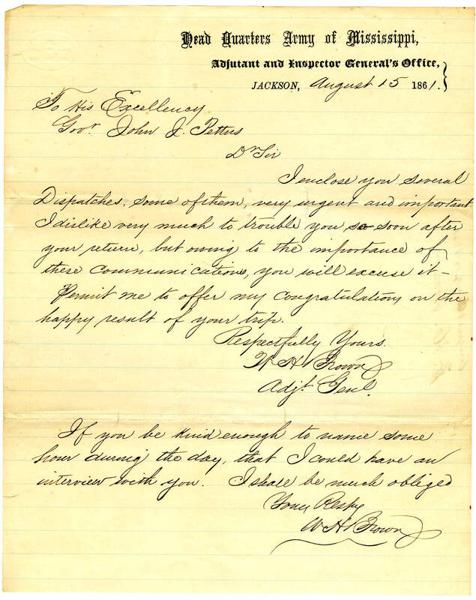 Head Quarters Army of Mississippi,
Adjutant and Inspector General's Office,
JACKSON, August 15 1861.
To His Excellency
Govr. John J. Pettus
Dr Sir
I enclose you several
Dispatches, some of them, very urgent and important
I dislike very much to trouble you so soon after
your return, but owing to the importance of
these Communications, you will excuse it –
Permit me to offer my congratulations on the
happy result of your trip.
Respectfully Yours.
W. H. Brown
Adjt. Genl.
If you be kind enough to name some
hour during the day, that I could have an
interview with you. I shall be much obliged
Your Respy
W. H. Brown